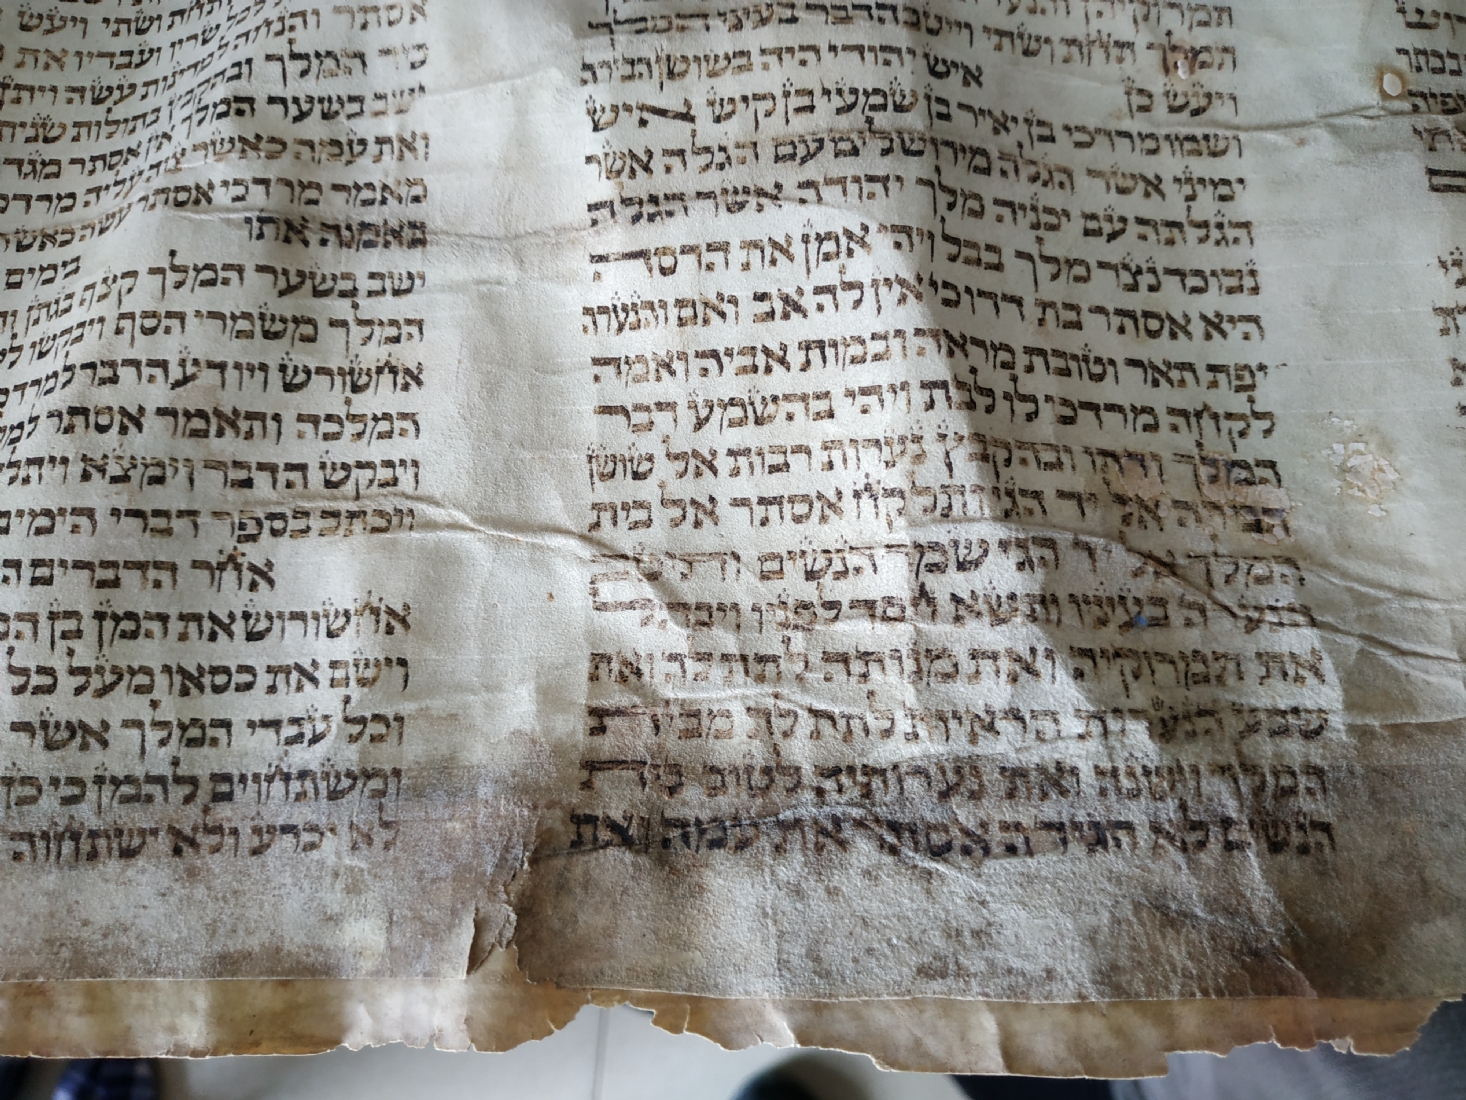 המלך תחת ושתי וייטב הדבר בעיני המלך
ויעש כן איש יהודי היה בשושן הבירה
ושמו מרדכי בן יאיר בן שמעי בן קיש איש
ימיני אשר הגלה מירושלים עם הגלה אשר
הגלתה עם יכניה מלך יהודה אשר הגלה
נבוכדנצר מלך בבל ויהי אמן את הדסה
היא אסתר בת דדו כי אין לה אב ואם והנערה
יפת תאר וטובת מראה ובמות אביה ואמה
לקחה מרדכי לו לבת ויהי בהשמע דבר
המלך ודתו ובהקבץ נערות רבות אל שושן
הבירה אל יד הגי ותלקח אסתר אל בית
המלך אל יד הגי שמר הנשים ותיטב
הנערה בעיניו ותשא חסד לפניו ויבהל
את תמרוקיה ואת מנותה לתת לה ואת
שבע הנערות הראיות לתת לה מבית
המלך וישנה ואת נערותיה לטוב בית
הנשים לא הגידה אסתר את עמה ואת
אסתר והנחה למדינות עשה ויתן
כיד המלך ובהקבץ בתולות שנית
ישב בשער המלך אין אסתר מגדת
ואת עמה כאשר צוה עליה מרדכי
מאמר מרדכי אסתר עשה כאשר
באמנה אתו
בימים
ישב בשער המלך קצף בגתן
המלך משמרי הסף ויבקשו
אחשורש ויודע הדבר למרדכי
המלכה ותאמר אסתר למלך
ויבקש הדבר וימצא ויתלו
ויכתב בספר דברי הימים
אחר הדברים
אחשורוש את המן בן
וישם את כסאו מעל כל
וכל עבדי המלך אשר
ומשתחוים להמן כי כן
לא יכרע ולא ישתחוה